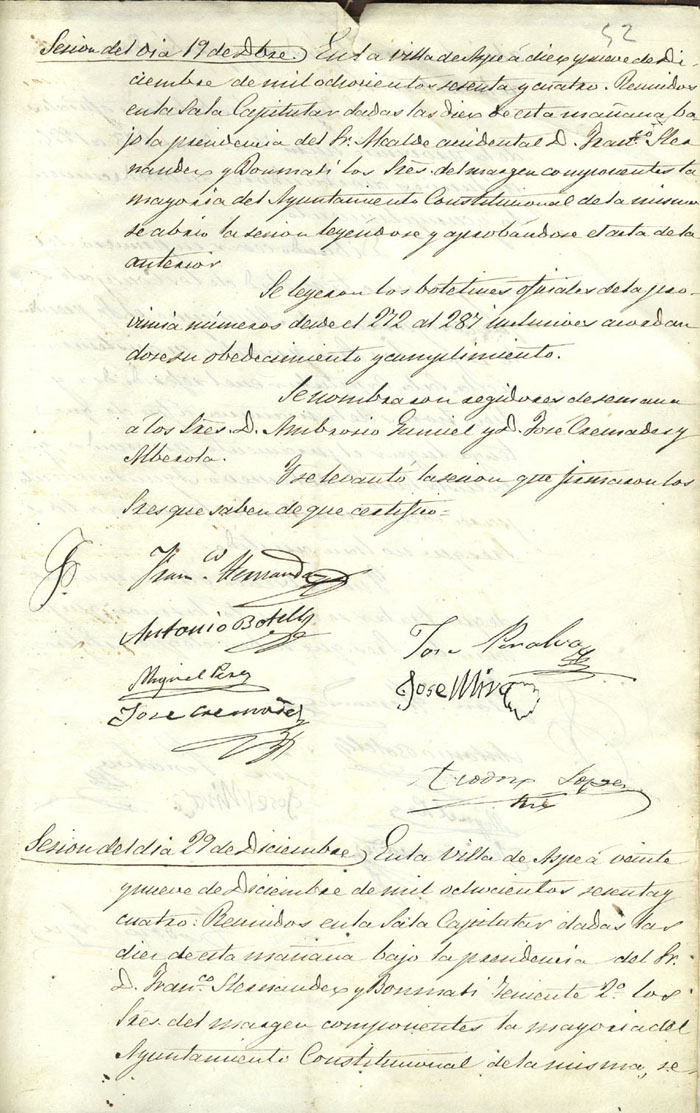 52
Sesion del dia 19 de Dbre.) En la villa de Aspe á diez y nueve de Di-
ciembre de mil ochocientos sesenta y cuatro. Reunidos
en la Sala Capitular dadas las diez de esta mañana ba-
jo la presidencia del Sr. Alcalde accidental D. Franco. Her-
nandez y Bonmati los Sres. del margen componentes la
mayoria del Ayuntamiento Constitucional de la misma
se abrio la sesion leyéndose y aprobándose el acta de la
anterior
Se leyeron los boletines oficiales de la pro-
vincia números desde el 272 al 287 inclusives acordan
dose su obedecimiento y cumplimiento.
Se nombraron regidores de semana
á los Sres. D. Ambrosio y D. José Cremades y
Alberola.
Y se levantó la sesion que firmaron los
Sres que saben de que certifico=
Franco. Hernandez
Antonio Botella
José Penalva
Miguel Perez
José Mira
José Cremades
Lopez
Srio
Sesion del dia 29 de Diciembre) En la villa de Aspe á veinte
y nueve de Diciembre de mil ochocientos sesenta y
cuatro: Reunidos en la Sala Capitular dadas las
diez de esta mañana bajo la presidencia del Sr.
D. Franco. Hernandez y Bonmati Teniente 2o. los
Sres. del margen componentes la mayoria del
Ayuntamiento Constitucional de la misma, se